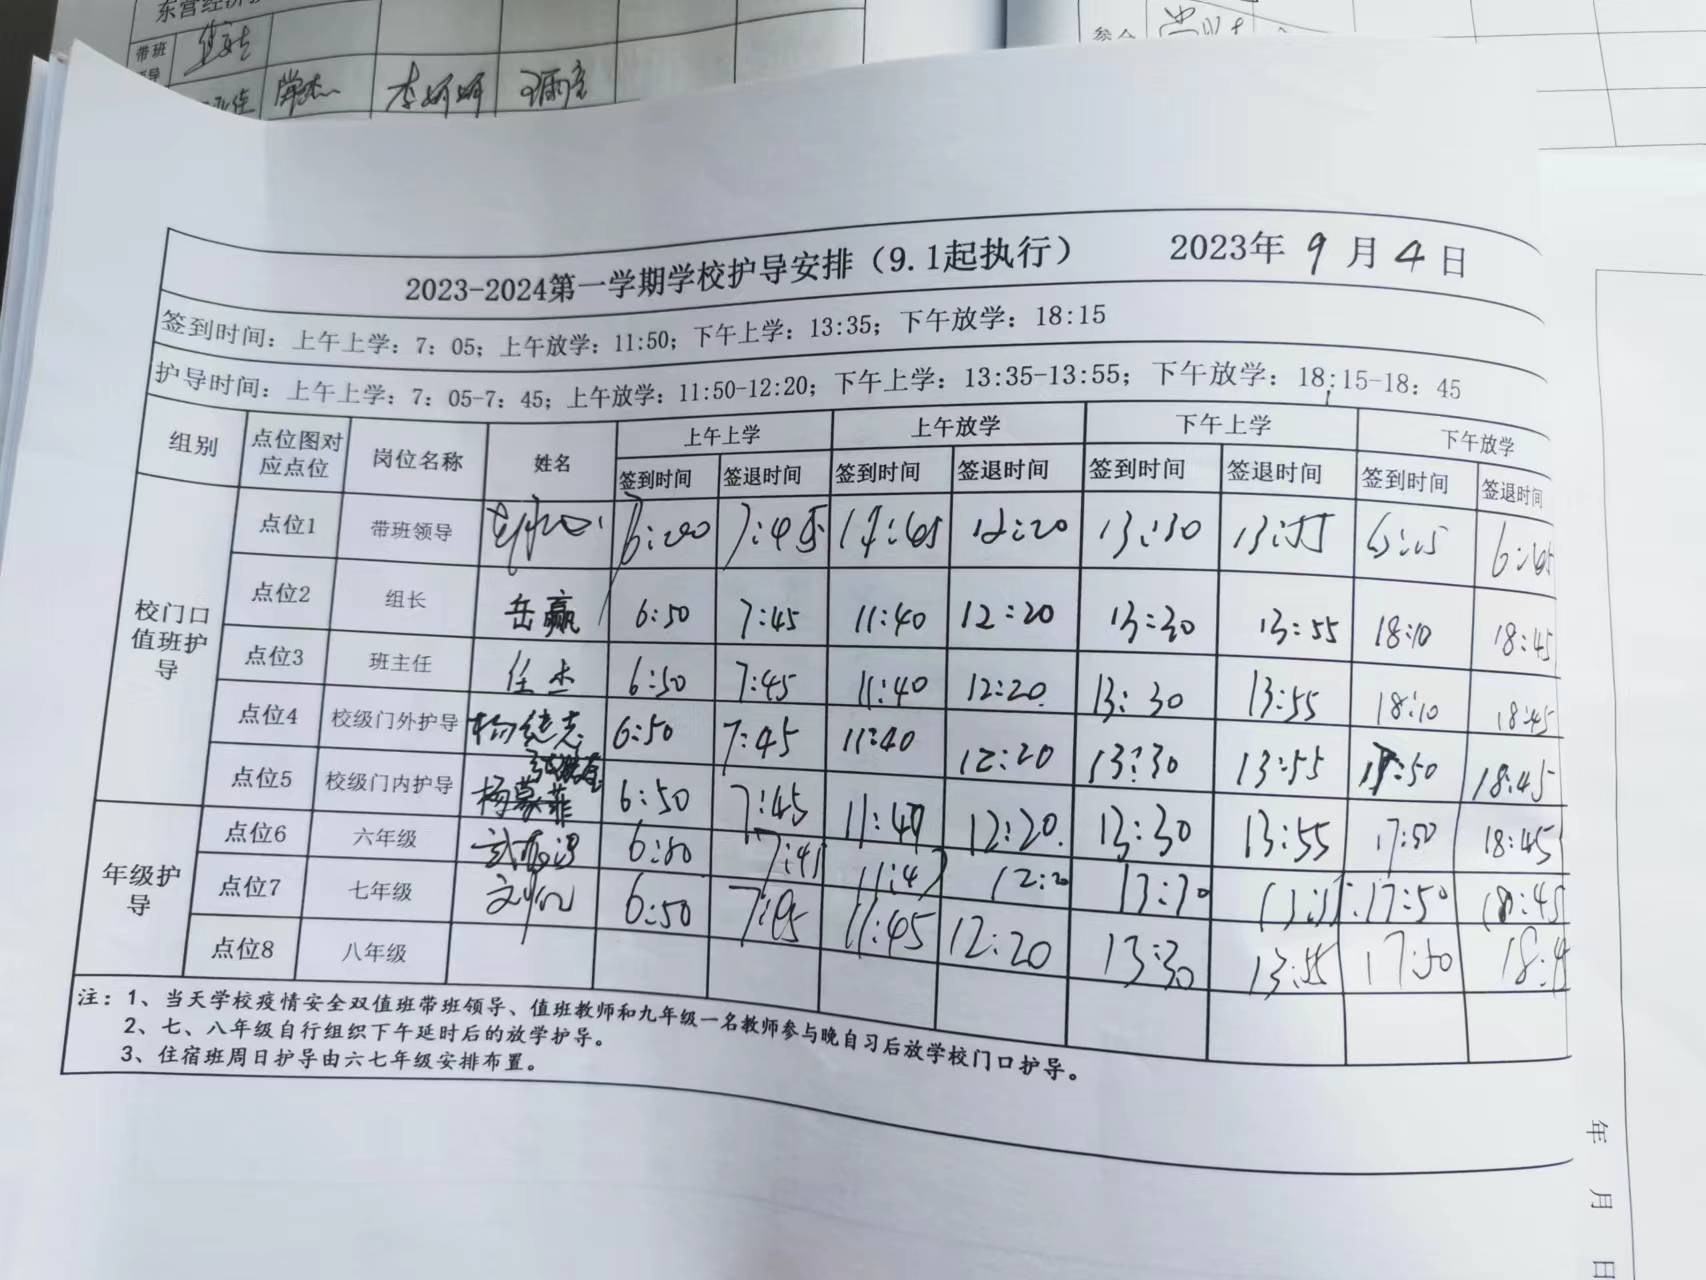 东营经济
带班
李娇娇
参会
2023-2024第一学期学校护导安排（9.1起执行） 2023年 9 月 4 日
签到时间：上午上学：7：05；上午放学：11:50；下午上学：13:35；下午放学：18:15
护导时间：上午上学：7：05-7：45；上午放学：11:50-12:20；下午上学：13:35-13:55；下午放学：18:15-18：45
组别 点位图对应点位 岗位名称 姓名 上午上学 上午放学 下午上学 下午放学
签到时间 签退时间 签到时间 签退时间 签到时间 签退时间 签到时间 签退时间
校门口值班护导
点位1 带班领导 7:45 12:20 13:30 13:55
点位2 组长 岳赢 6:50 7:45 11:40 12:20 13:30 13:55 18:10 18:45
点位3 班主任 任杰 6:50 7:45 11:40 12:20 13:30 13:55 18:10 18:45
点位4 校级门外护导 杨继志 6:50 7:45 11:40 12:20 13:30 13:55 17:50 18:45
点位5 校级门内护导 杨慕菲 6:50 7:45 11:40 12:20 13:30 13:55 17:50 18:45
年级护导
点位6 六年级 7:45 11:47 12:20 13:30 17:50 18:45
点位7 七年级 6:50 7:45 11:45 12:20 13:30 13:55 17:50 18:4
点位8 八年级
注：1、当天学校疫情安全双值班带班领导、值班教师和九年级一名教师参与晚自习后放学校门口护导。
2、七、八年级自行组织下午延时后的放学护导。
3、住宿班周日护导由六七年级安排布置。
年 月 日